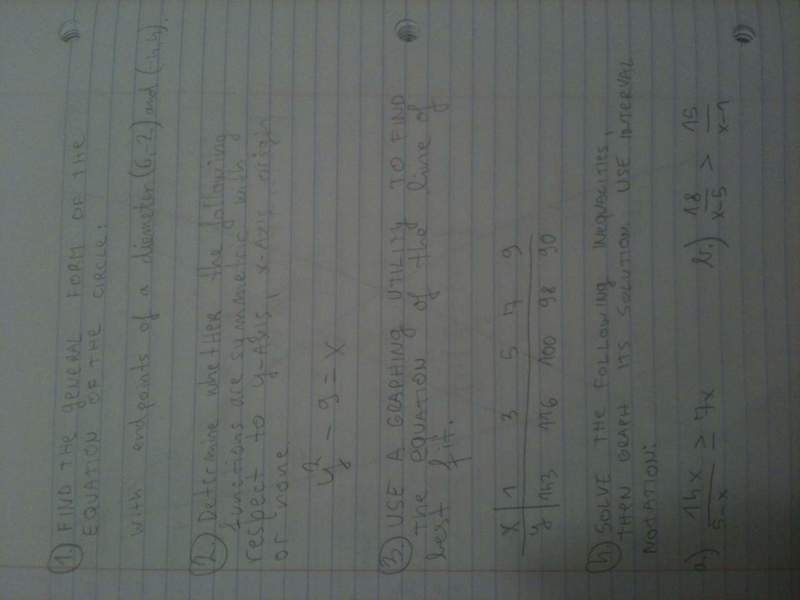 1) FIND THE GENERAL FORM OF THE
EQUATION OF THE CIRCLE:
with endpoints of a diameter (6, 2) and (-4, 4).
2) Determine whether the following
functions are symmetric with
respect to y-Axis, x-Axis, origin,
or none.
y² - 9 = x
3) USE A GRAPHING UTILITY TO FIND
the equation of the line of
best fit.
x | 1 3 5 7 9
y | 143 116 100 98 90
4) SOLVE THE FOLLOWING INEQUALITIES,
THEN GRAPH ITS SOLUTION. USE INTERVAL
NOTATION:
a) 14x/(5-x) ≥ 7x b.) 18/(x-5) > 15/(x-1)